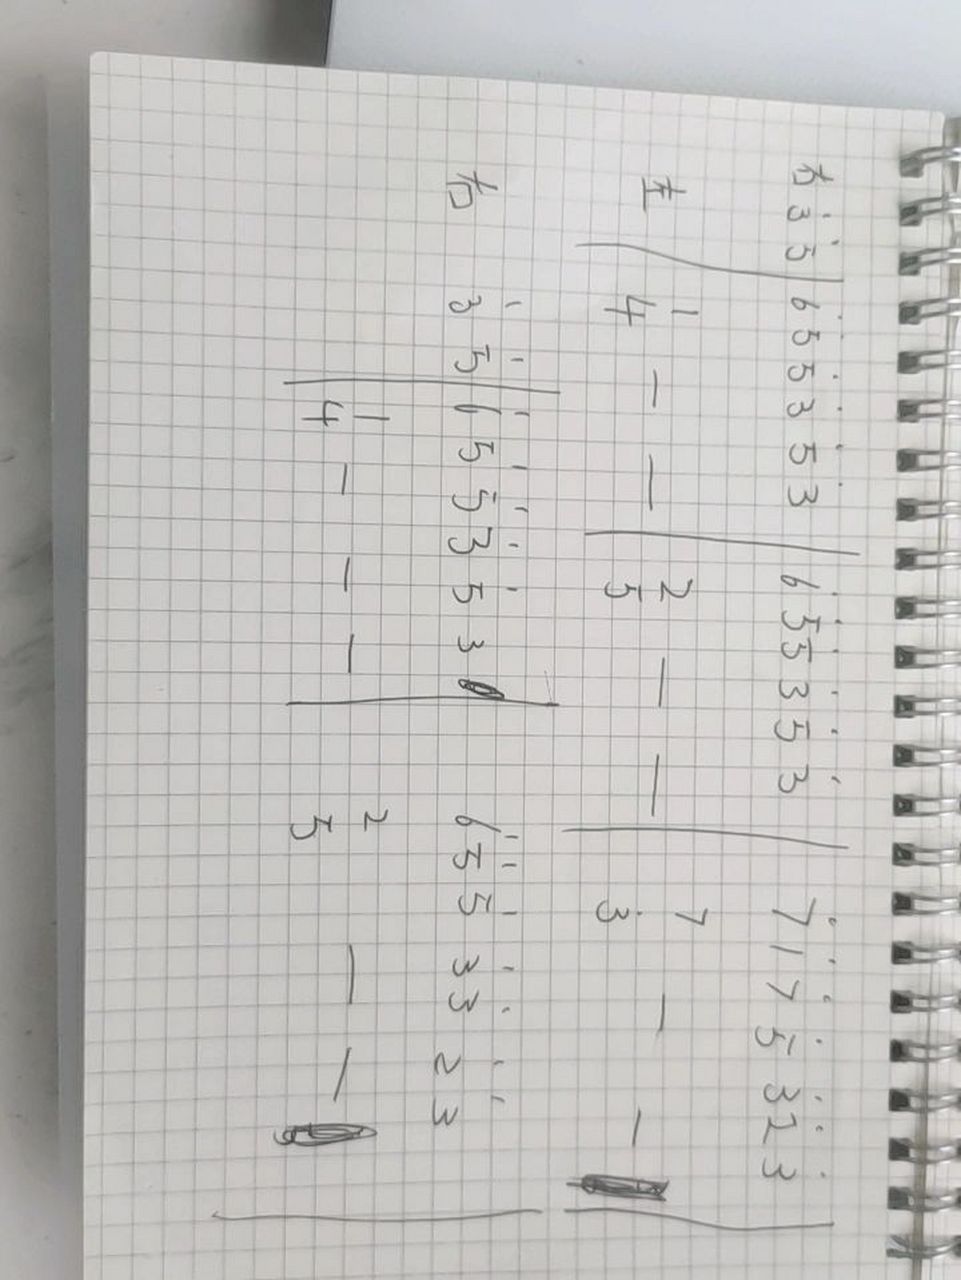 右 3̇ 5̇ | 6̇ 5̇ 5̇ 3̇ 5̇ 3̇ | 6̇ 5̇ 5̇ 3̇ 5̇ 3̇ | 7̇ 1̇ 7̇ 5̇ 3̇ 2̇ 3̇ |
1 2 7
左 | 4 — — | 5 — — | 3 — — |
右 3̇ 5̇ | 6̇ 5̇ 5̇ 3̇ 5̇ 3 | 6̇ 5̇ 5̇ 3̇ 3̇ 2̇ 3̇ |
1 2
4 — — — | 5 — — |